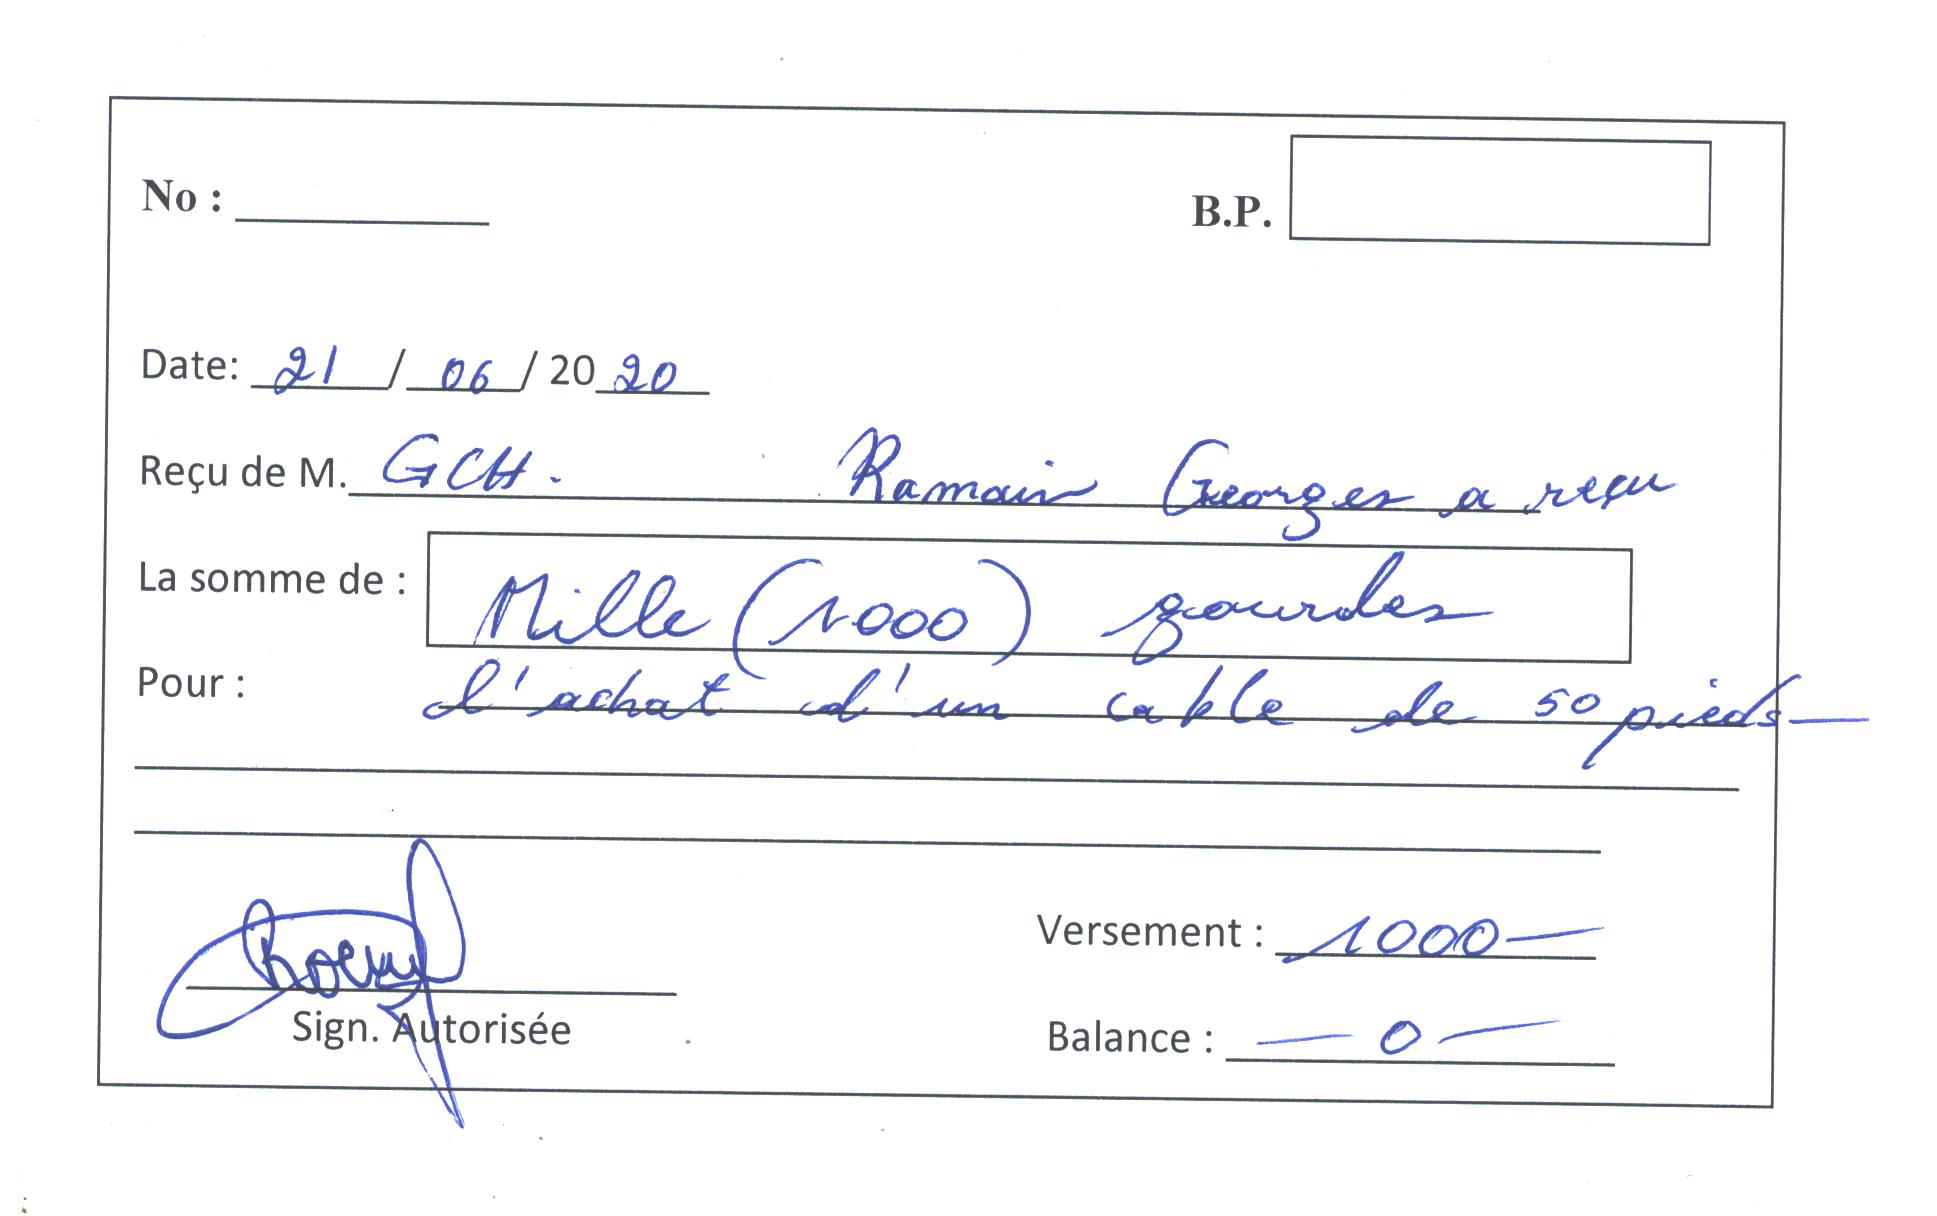 No : 
B.P.
Date: 21 / 06 / 2020
Reçu de M. GCH. Ramain Georges a reçu
La somme de : Mille (1000) gourdes
Pour : l'achat d'un cable de 50 pieds
Versement : 1000
Sign. Autorisée
Balance : - 0 -